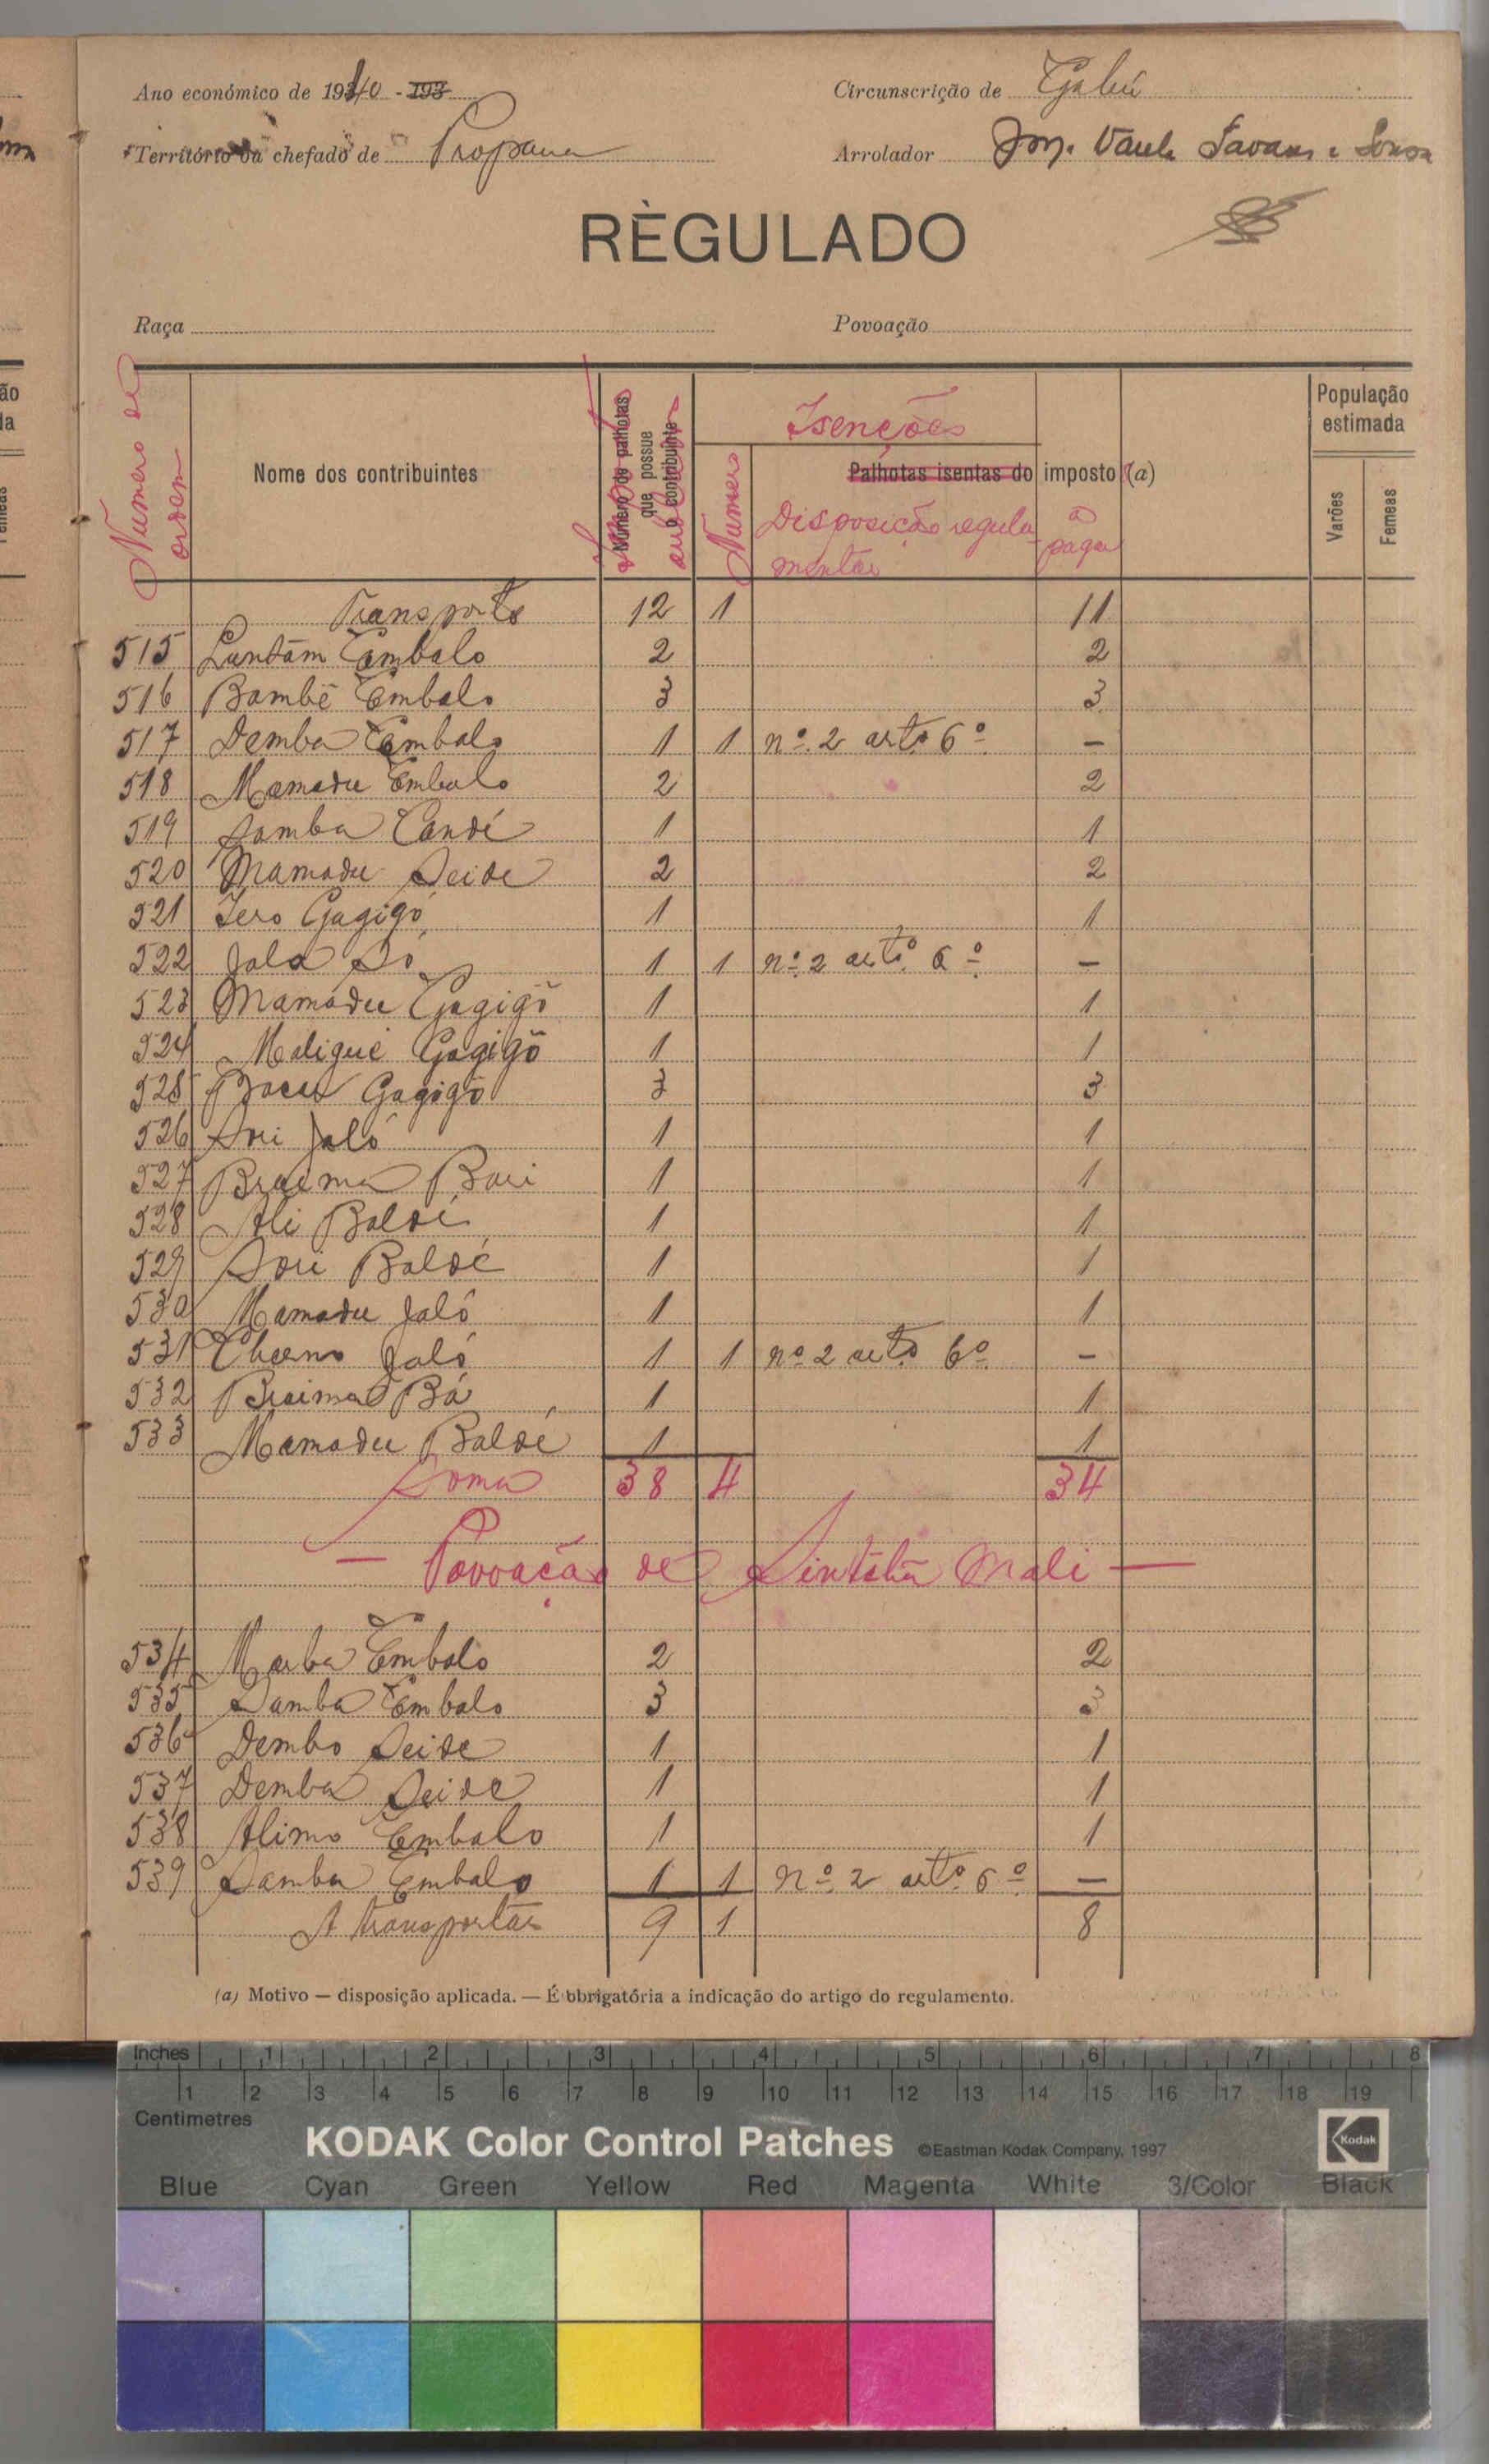 Ano económico de 1940 - 193
Circunscrição de Gabú
Território ou chefado de Propana
Arrolador Tavares e Sousa
RÈGULADO
Raça
Povoação
Numero de ordem
Nome dos contribuintes
Número de palhotas que possue o contribuinte
Isenções
Numero
Palhotas isentas do imposto (a)
Disposição regulamentar
a pagar
População estimada
Varões
Femeas
Transporte 12 1 11
515 Lundam Embalo 2 2
516 Bambé Embalo 3 3
517 Demba Embalo 1 1 nº 2 artº 6º —
518 Mamadu Embalo 2 2
519 Samba Candé 1 1
520 Mamadu Seide 2 2
521 Iero Gagigó 1 1
522 Jala Só 1 1 nº 2 artº 6º —
523 Mamadu Gagigó 1 1
524 Maligué Gagigó 1 1
525 Gagigó 3 3
526 Sori Jaló 1 1
527 Braima Bari 1 1
528 Ali Baldé 1 1
529 Sori Baldé 1 1
530 Mamadu Jaló 1 1
531 Cherno Jaló 1 1 nº 2 artº 6º —
532 Braima Bá 1 1
533 Mamadu Baldé 1 1
Soma 38 4 34
— Povoação de Sintchã Mali —
534 Embalo 2 2
535 Samba Embalo 3 3
536 Dembo Seide 1 1
537 Demba Seide 1 1
538 Alimo Embalo 1 1
539 Samba Embalo 1 1 nº 2 artº 6º —
A transportar 9 1 8
(a) Motivo — disposição aplicada. — É obrigatória a indicação do artigo do regulamento.
Inches 1 2 3 4 5 6 7 8
1 2 3 4 5 6 7 8 9 10 11 12 13 14 15 16 17 18 19
Centimetres
KODAK Color Control Patches ©Eastman Kodak Company, 1997 Kodak
Blue Cyan Green Yellow Red Magenta White 3/Color Black